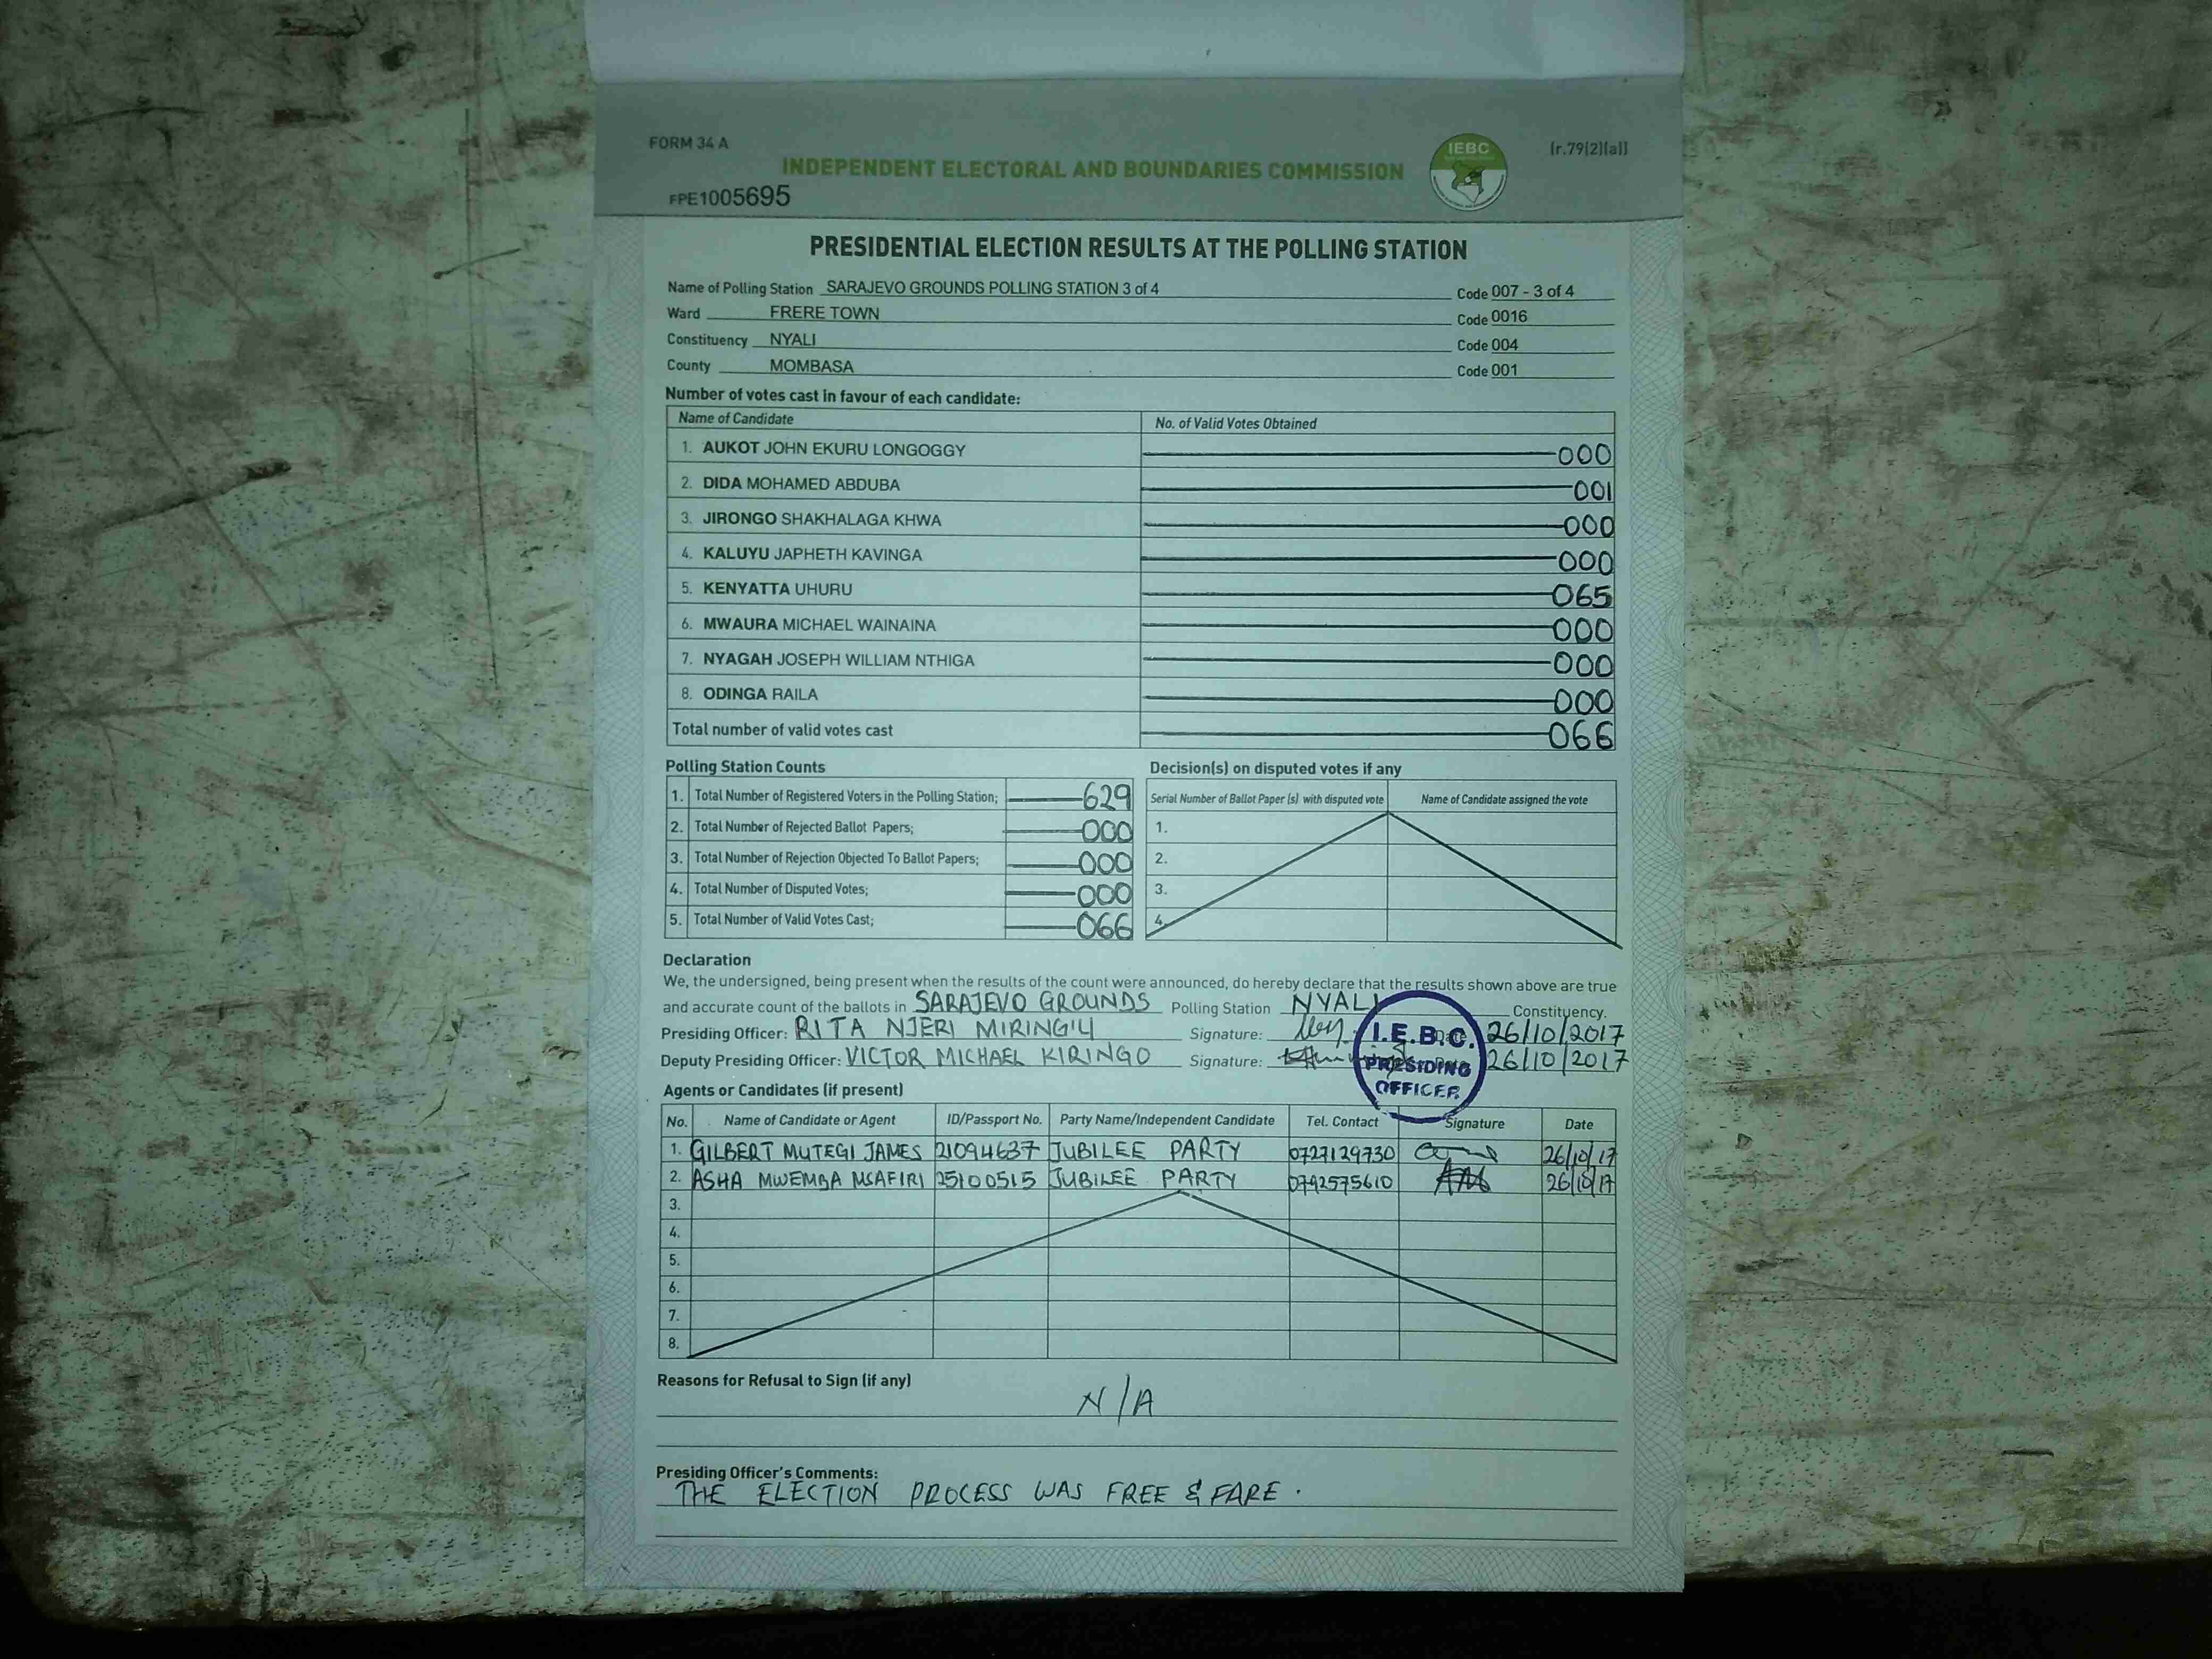 FORM 34 A
INDEPENDENT ELECTORAL AND BOUNDARIES COMMISSION
IEBC
[r.79(2)(a)]
FPE1005695
PRESIDENTIAL ELECTION RESULTS AT THE POLLING STATION
Name of Polling Station SARAJEVO GROUNDS POLLING STATION 3 of 4 Code 007 - 3 of 4
Ward FRERE TOWN Code 0016
Constituency NYALI Code 004
County MOMBASA Code 001
Number of votes cast in favour of each candidate:
Name of Candidate No. of Valid Votes Obtained
1. AUKOT JOHN EKURU LONGOGGY 000
2. DIDA MOHAMED ABDUBA 001
3. JIRONGO SHAKHALAGA KHWA 000
4. KALUYU JAPHETH KAVINGA 000
5. KENYATTA UHURU 065
6. MWAURA MICHAEL WAINAINA 000
7. NYAGAH JOSEPH WILLIAM NTHIGA 000
8. ODINGA RAILA 000
Total number of valid votes cast 066
Polling Station Counts
1. Total Number of Registered Voters in the Polling Station; 629
2. Total Number of Rejected Ballot Papers; 000
3. Total Number of Rejection Objected To Ballot Papers; 000
4. Total Number of Disputed Votes; 000
5. Total Number of Valid Votes Cast; 066
Decision(s) on disputed votes if any
Serial Number of Ballot Paper (s) with disputed vote Name of Candidate assigned the vote
1.
2.
3.
4.
Declaration
We, the undersigned, being present when the results of the count were announced, do hereby declare that the results shown above are true
and accurate count of the ballots in SARAJEVO GROUNDS Polling Station NYALI Constituency.
Presiding Officer: RITA NJERI Signature: Date 26/10/2017
Deputy Presiding Officer: VICTOR MICHAEL KIRINGO Signature: Date 26/10/2017
I.E.B.C.
PRESIDING
OFFICER
Agents or Candidates (if present)
No. Name of Candidate or Agent ID/Passport No. Party Name/Independent Candidate Tel. Contact Signature Date
1. GILBERT MUTEGI JAMES 21094637 JUBILEE PARTY 0727129730 26/10/17
2. ASHA MWEMBA MSAFIRI 25100515 JUBILEE PARTY 0792575610 26/10/17
3.
4.
5.
6.
7.
8.
Reasons for Refusal to Sign (if any)
N/A
Presiding Officer's Comments:
THE ELECTION PROCESS WAS FREE & FARE.